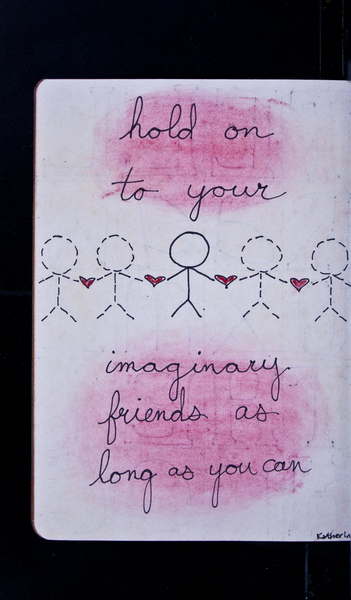 hold on
to your
imaginary
friends as
long as you can